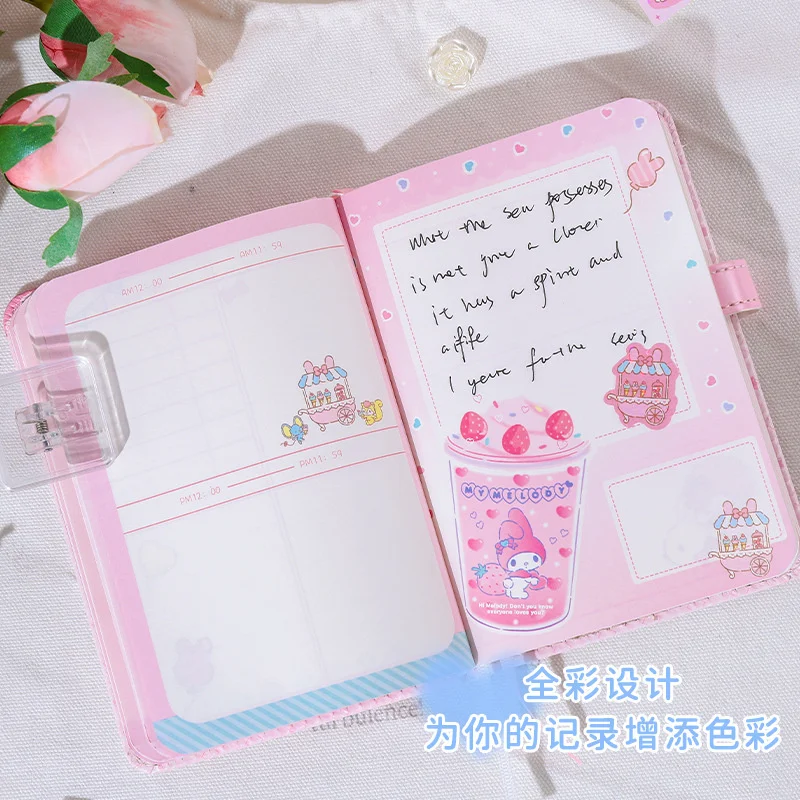 AM12:00 AM11:59
PM12:00 PM11:59
what the sea possesses
is not give a lover
it has a spirit and
a life
I for the
MY MELODY
Hi Melody! Don't you know
everyone loves you?
turbulence
全彩设计
为你的记录增添色彩